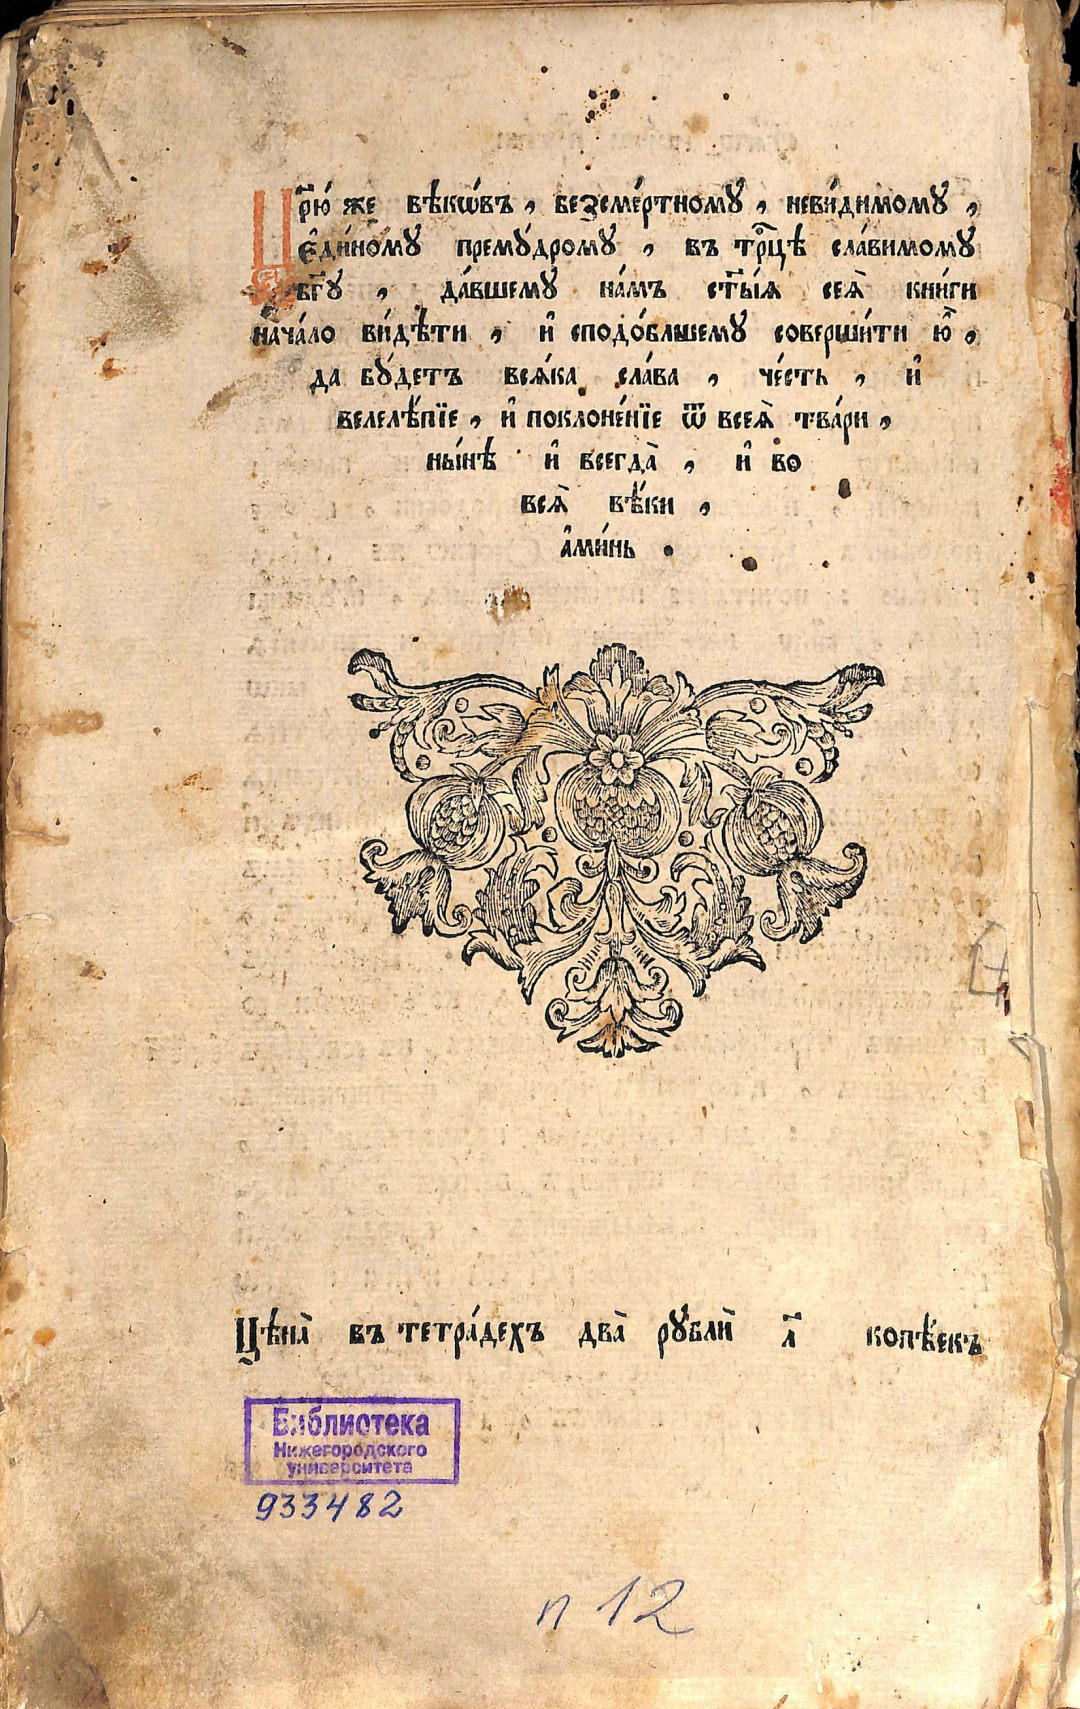 Цр҃ю́ же вѣкѡ́въ, безсме́ртному, неви́димому,
є҆ди́ному премꙋ́дрому, въ трⷪ҇цѣ сла́вимому
бг҃ꙋ, да́вшемꙋ на́мъ ст҃ы́ѧ сеѧ̀ кни́ги
нача́ло ви́дѣти, и҆ сподо́бльшемꙋ соверши́ти ю҆̀,
да бꙋ́детъ всѧ́ка сла́ва, че́сть, и҆
велелѣ́пїе, и҆ поклоне́нїе ѿ всеѧ̀ тва́ри,
ны́нѣ и҆ всегда̀, и҆ во
всѧ̀ вѣ́ки,
а҆ми́нь.
Цѣна̀ въ тетра́дехъ два̀ рꙋблѝ л҃ копѣ́екъ
Библиотека
Нижегородского
университета
933482
п 12